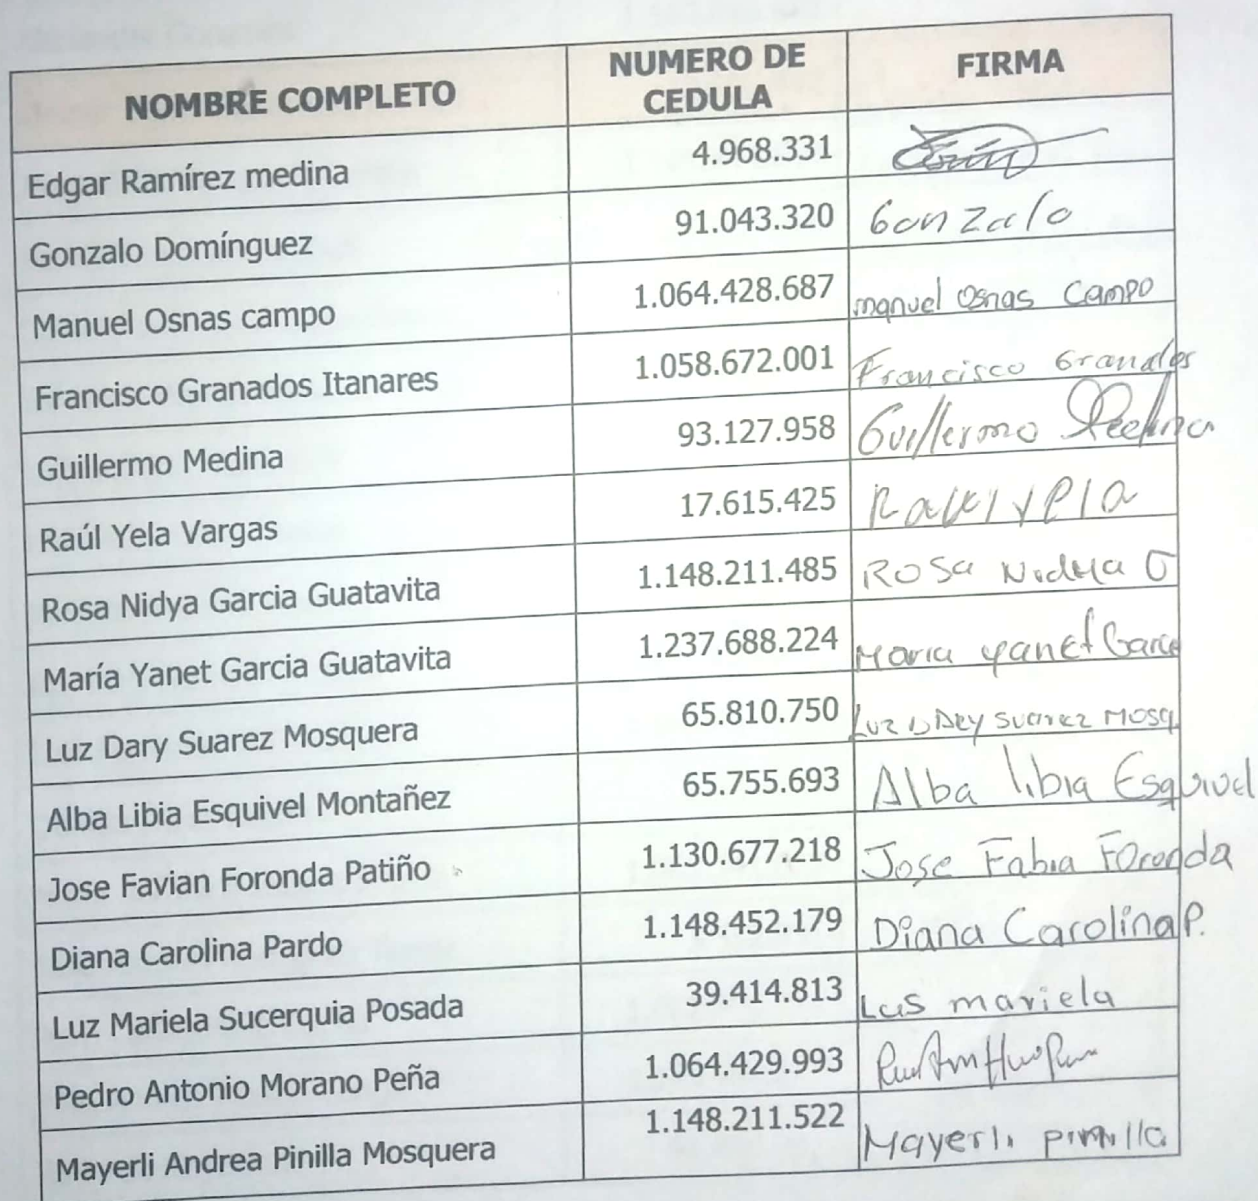 NOMBRE COMPLETO NUMERO DE CEDULA FIRMA
Edgar Ramírez medina 4.968.331
Gonzalo Domínguez 91.043.320 Gonzalo
Manuel Osnas campo 1.064.428.687 manuel Osnas Campo
Francisco Granados Itanares 1.058.672.001 Francisco Granados
Guillermo Medina 93.127.958 Guillermo Medina
Raúl Yela Vargas 17.615.425 Raul Yela
Rosa Nidya Garcia Guatavita 1.148.211.485 Rosa Nidya G
María Yanet Garcia Guatavita 1.237.688.224 Maria yanet Garcia
Luz Dary Suarez Mosquera 65.810.750 Luz DAry suarez Mosq
Alba Libia Esquivel Montañez 65.755.693 Alba libia Esquivel
Jose Favian Foronda Patiño 1.130.677.218 Jose Fabia Foronda
Diana Carolina Pardo 1.148.452.179 Diana Carolina P.
Luz Mariela Sucerquia Posada 39.414.813 Lus mariela
Pedro Antonio Morano Peña 1.064.429.993
Mayerli Andrea Pinilla Mosquera 1.148.211.522 Mayerli pinilla